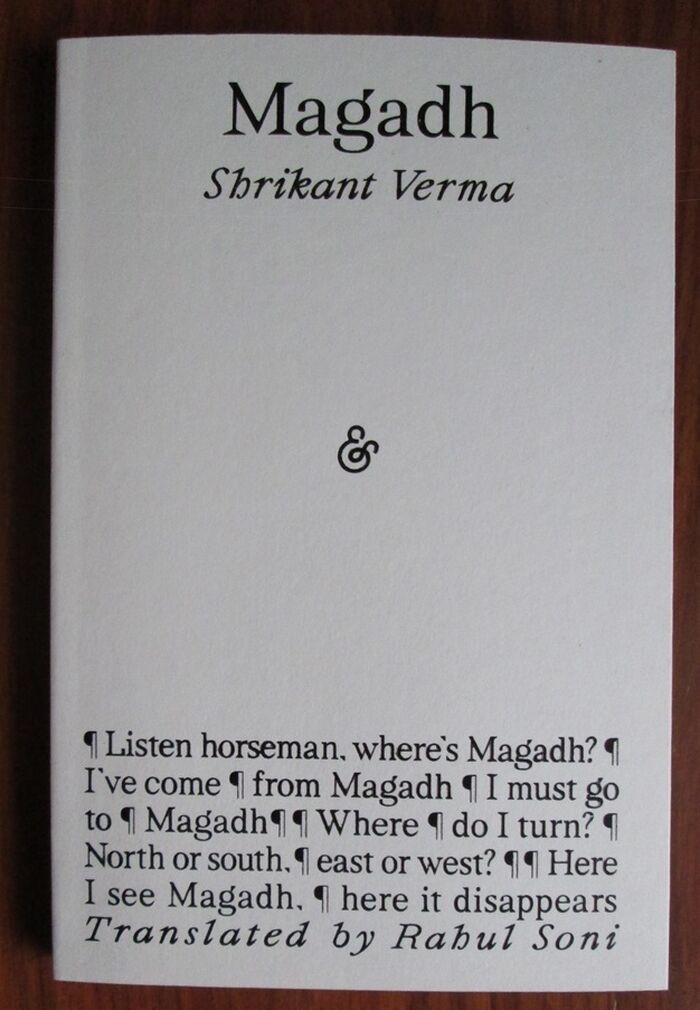 Magadh
Shrikant Verma
&
¶ Listen horseman, where's Magadh? ¶
I've come ¶ from Magadh ¶ I must go
to ¶ Magadh¶ ¶ Where ¶ do I turn? ¶
North or south, ¶ east or west? ¶ ¶ Here
I see Magadh, ¶ here it disappears
Translated by Rahul Soni